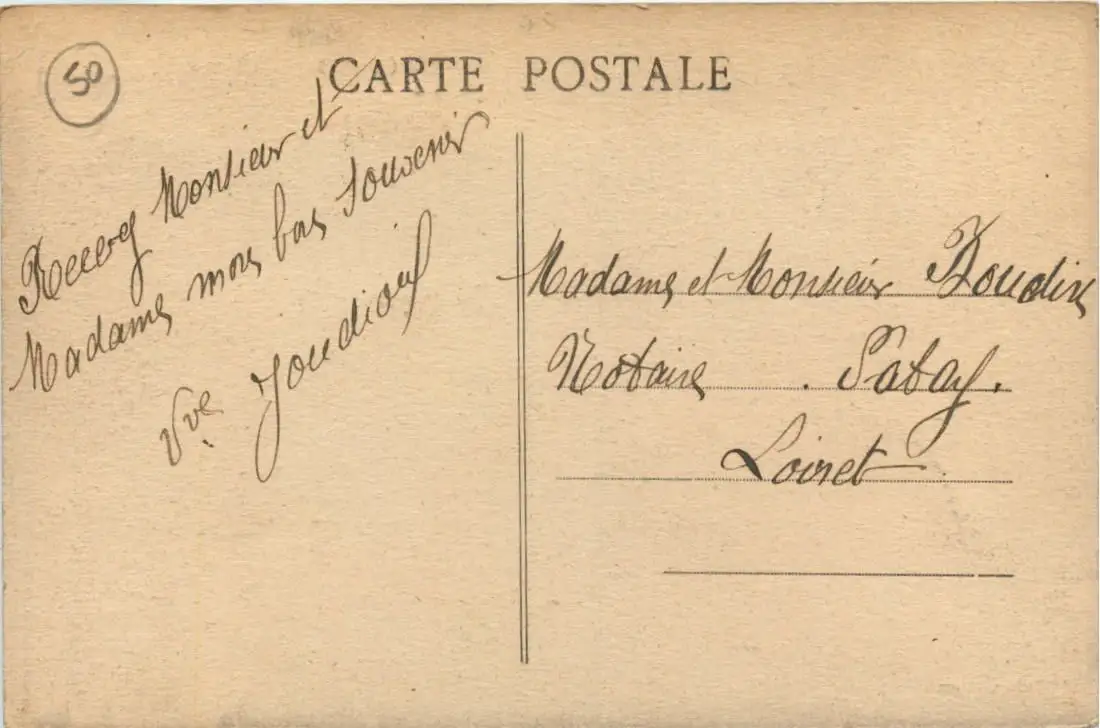 50
CARTE POSTALE
Recevez Monsieur et
Madame mon bon Souvenir
Vve
Madame et Monsieur Boudin
Notaire . Patay.
Loiret